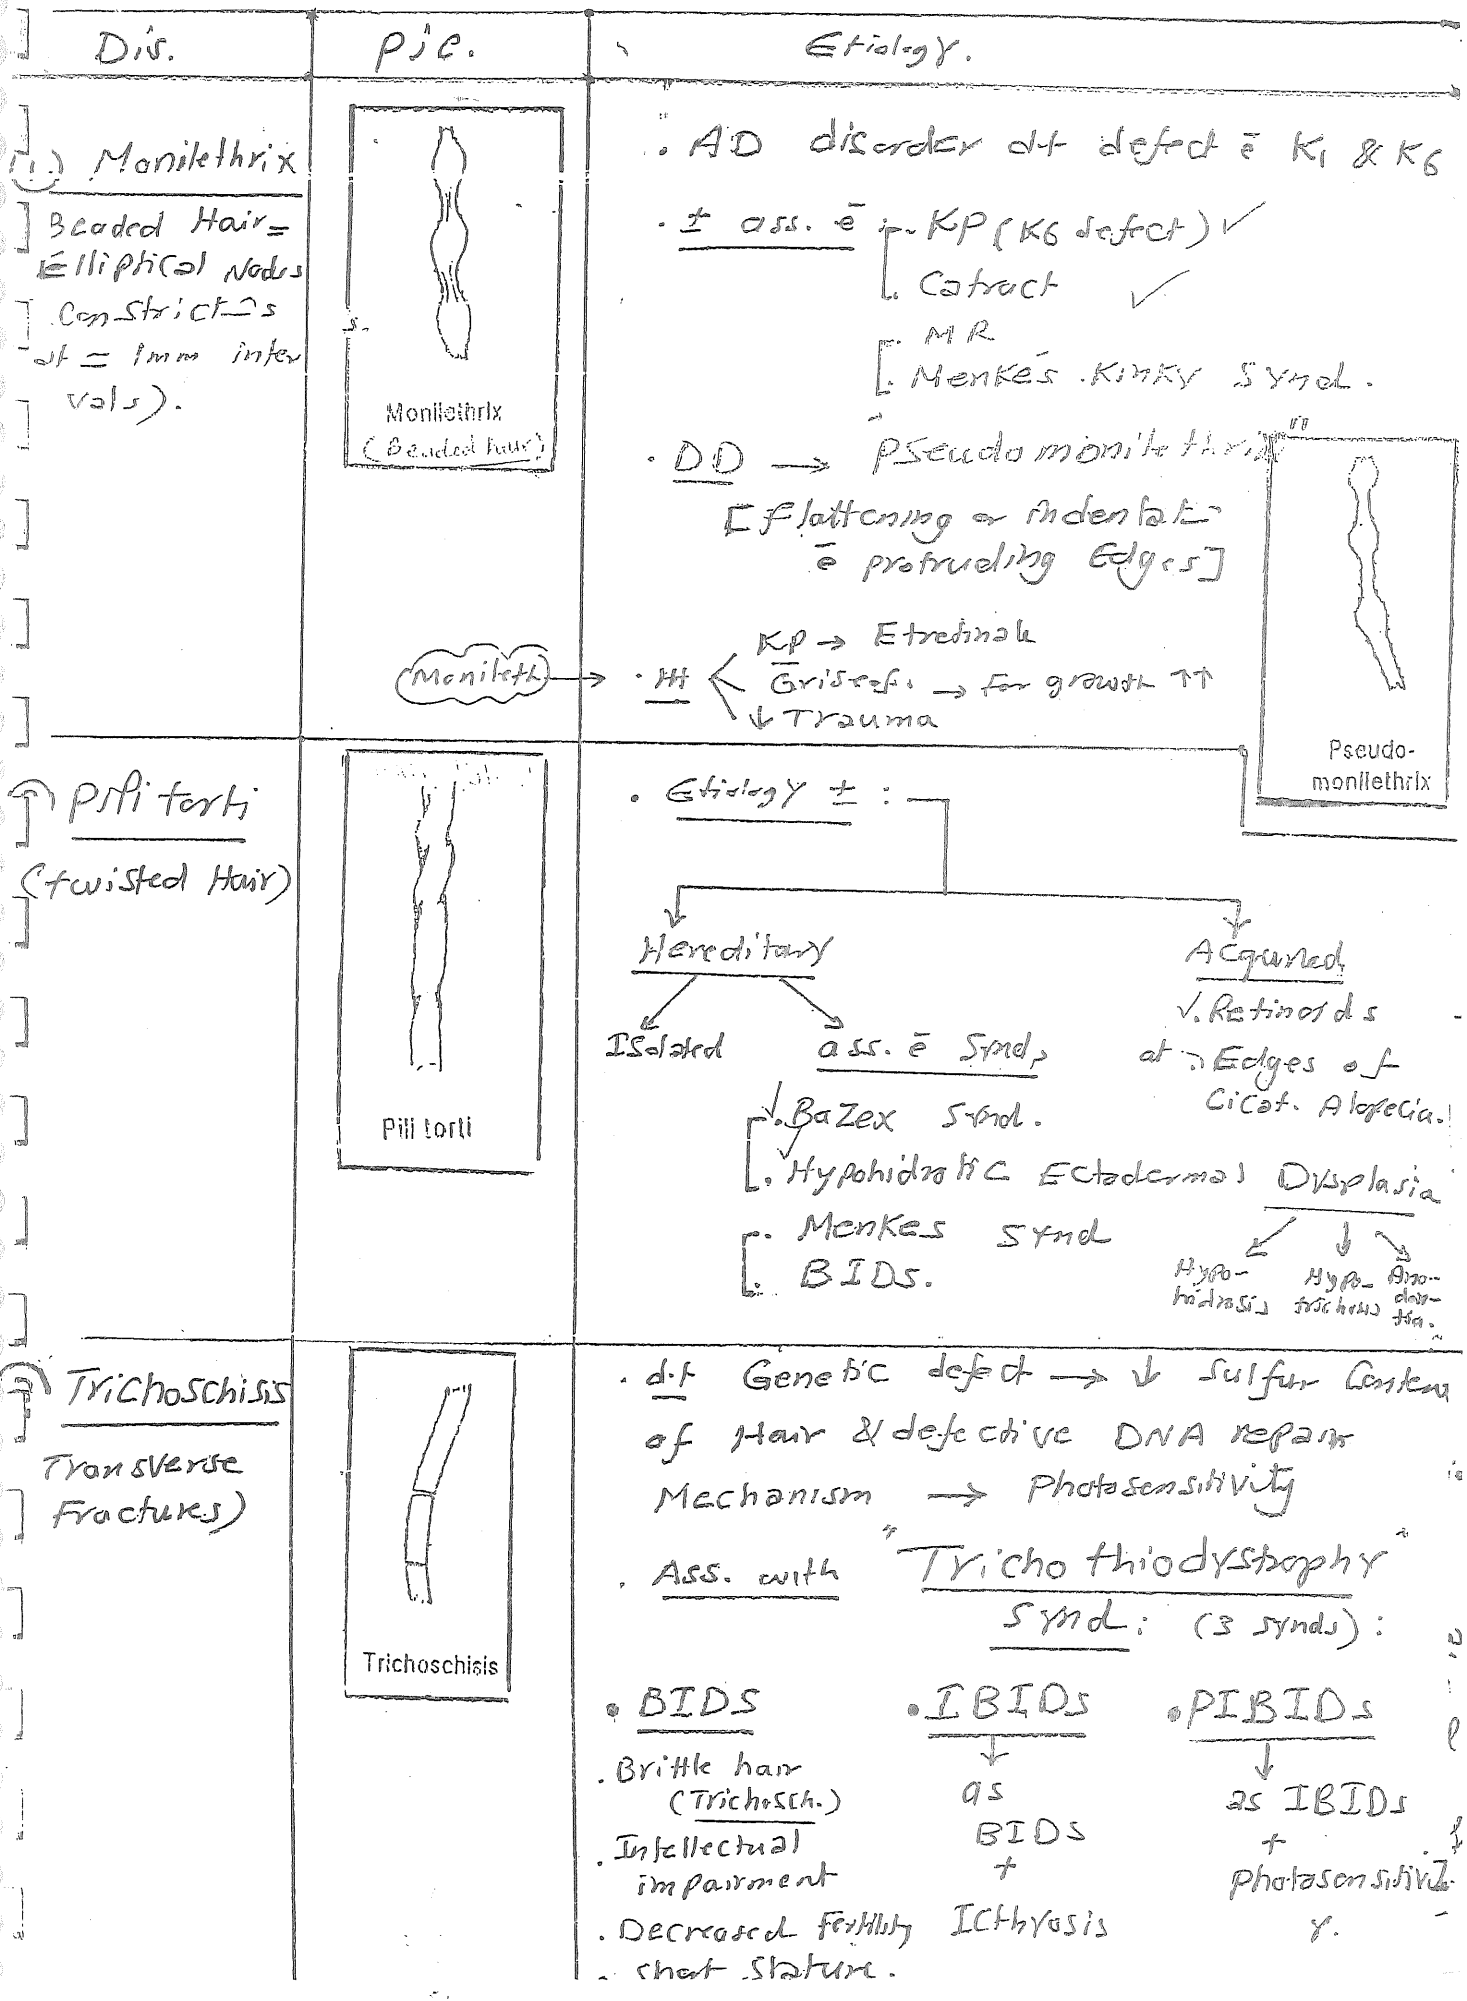 Dis.
Pic.
Etiology.
(1) Monilethrix
Beaded Hair=
Elliptical Nodes
Constrict⁻s
at = 1mm inter
vals).
Monilethrix
(Beaded hair)
. AD disorder dt defect ē K1 & K6
. ± ass. ē . KP (K6 defect) ✓
. Catract ✓
. MR
. Menkes .Kinky Synd.
. DD → Pseudomonilethrix"
[flattening or indentat⁻
ē protruding Edges]
Pseudo-
monilethrix
Monileth → . ttt
KP → Etretinate
Griseof. → for growth ↑↑
↓ Trauma
Pili torti
(twisted Hair)
Pili torti
. Etiology ± :
Hereditary
Isolated
ass. ē Synd,
✓. Bazex Synd.
✓. Hypohidrotic Ectodermal Dysplasia
Hypo-
hidrosis
Hypo-
trichosis
Ano-
don-
tia.
. Menkes Synd
. BIDs.
Acquired
✓. Retinoids
at Edges of
Cicat. Alopecia.
Trichoschisis
Transverse
Fractures)
Trichoschisis
. d.t Genetic defect → ↓ Sulfur Content
of Hair & defective DNA repair
Mechanism → Photosensitivity
. Ass. with "Trichothiodystrophy"
Synd: (3 synds) :
• BIDS
. Brittle hair
(Trichosch.)
. Intellectual
impairment
. Decreased Fertility
. short stature.
• IBIDs
↓
as
BIDS
+
Icthyosis
• PIBIDs
↓
as IBIDs
+
Photosensitivit
y.